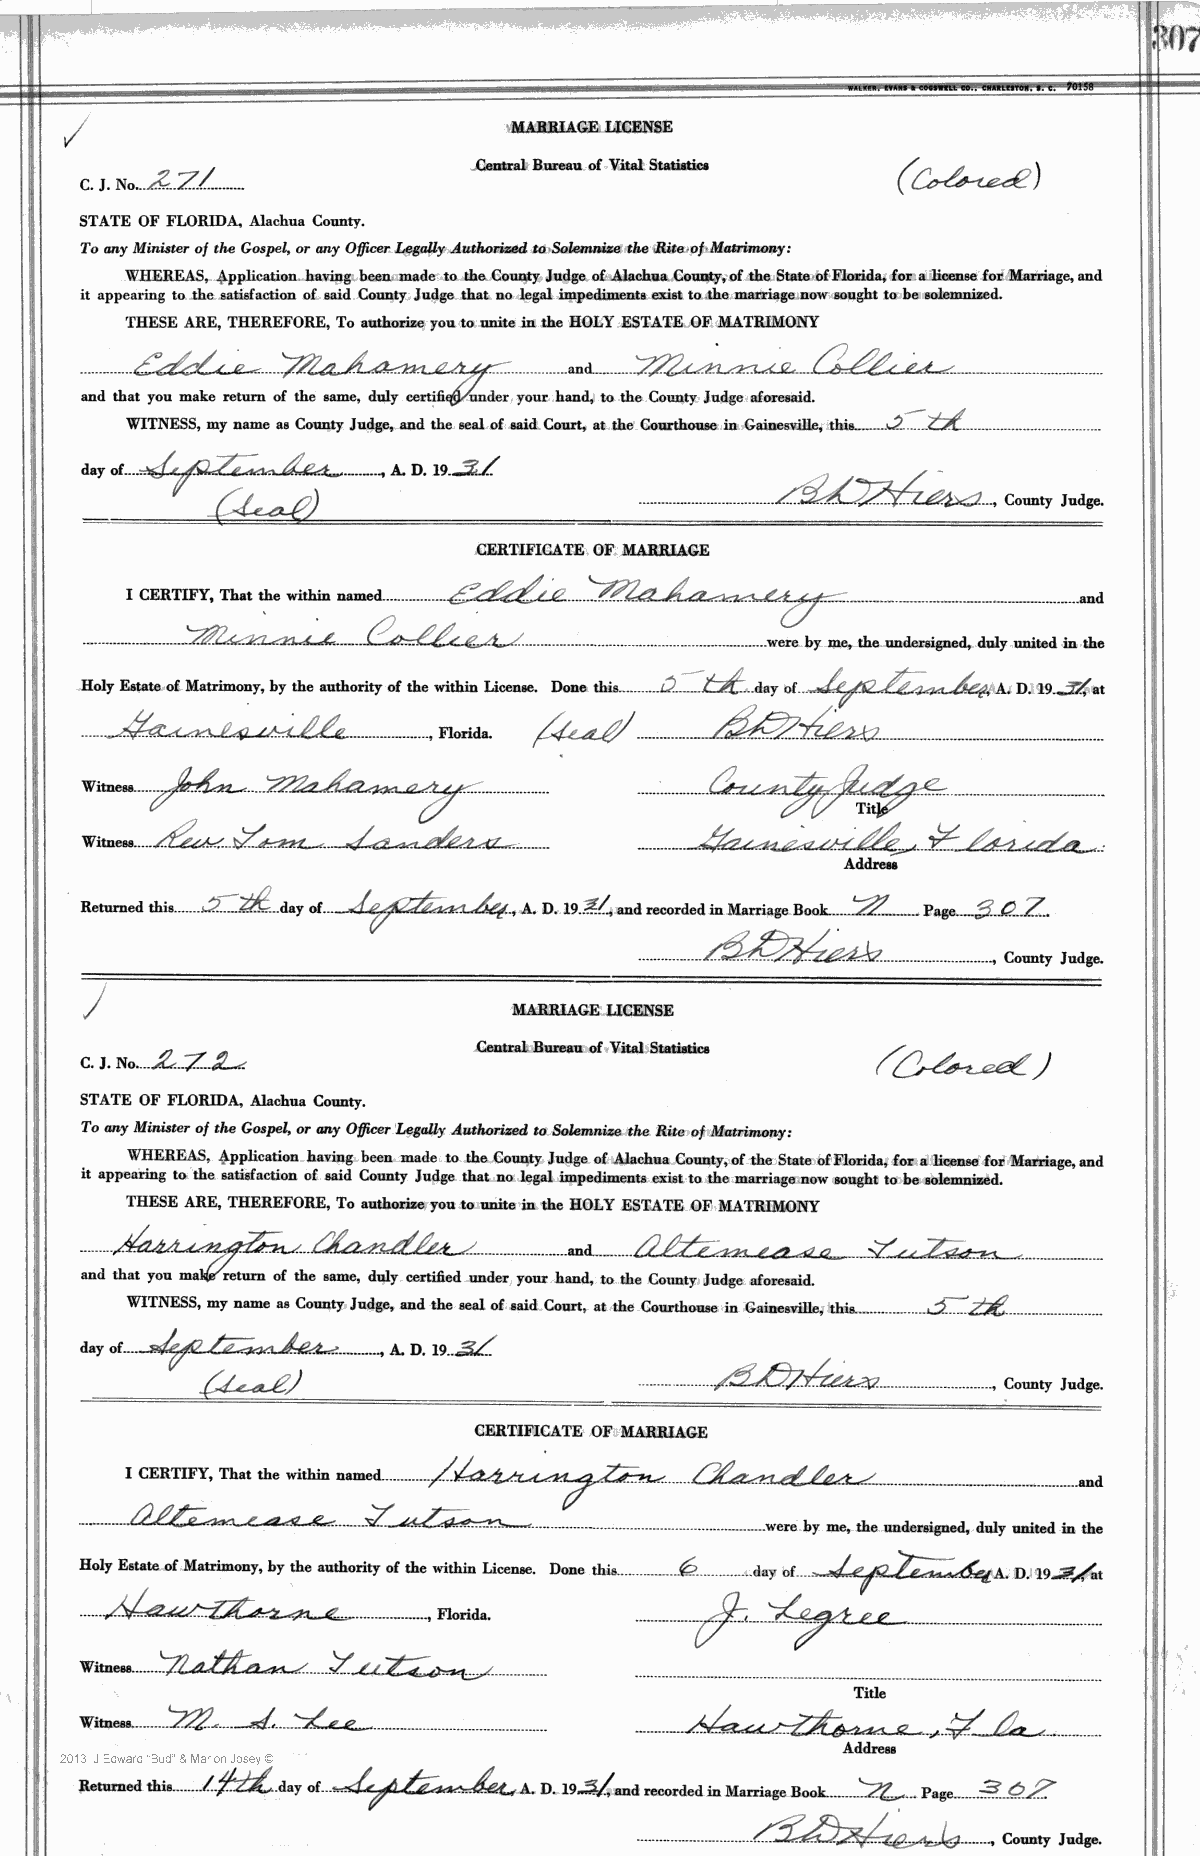 307
WALKER, EVANS & COGSWELL CO., CHARLESTON, S. C. 70158
MARRIAGE LICENSE
Central Bureau of Vital Statistics
(Colored)
C. J. No. 271
STATE OF FLORIDA, Alachua County.
To any Minister of the Gospel, or any Officer Legally Authorized to Solemnize the Rite of Matrimony:
WHEREAS, Application having been made to the County Judge of Alachua County, of the State of Florida, for a license for Marriage, and
it appearing to the satisfaction of said County Judge that no legal impediments exist to the marriage now sought to be solemnized.
THESE ARE, THEREFORE, To authorize you to unite in the HOLY ESTATE OF MATRIMONY
Eddie Mahamery and Minnie Collier
and that you make return of the same, duly certified under your hand, to the County Judge aforesaid.
WITNESS, my name as County Judge, and the seal of said Court, at the Courthouse in Gainesville, this 5th
day of September, A. D. 1931
(Seal) BD Hiers, County Judge.
CERTIFICATE OF MARRIAGE
I CERTIFY, That the within named Eddie Mahamery and
Minnie Collier were by me, the undersigned, duly united in the
Holy Estate of Matrimony, by the authority of the within License. Done this 5th day of September, A. D. 1931, at
Gainesville, Florida. (Seal) BD Hiers
Witness John Mahamery County Judge
Title
Witness Rev. Tom Sanders Gainesville, Florida
Address
Returned this 5th day of September, A. D. 1931, and recorded in Marriage Book N Page 307.
BD Hiers, County Judge.
MARRIAGE LICENSE
Central Bureau of Vital Statistics
(Colored)
C. J. No. 272
STATE OF FLORIDA, Alachua County.
To any Minister of the Gospel, or any Officer Legally Authorized to Solemnize the Rite of Matrimony:
WHEREAS, Application having been made to the County Judge of Alachua County, of the State of Florida, for a license for Marriage, and
it appearing to the satisfaction of said County Judge that no legal impediments exist to the marriage now sought to be solemnized.
THESE ARE, THEREFORE, To authorize you to unite in the HOLY ESTATE OF MATRIMONY
Harrington Chandler and Altemease Tutson
and that you make return of the same, duly certified under your hand, to the County Judge aforesaid.
WITNESS, my name as County Judge, and the seal of said Court, at the Courthouse in Gainesville, this 5th
day of September, A. D. 1931
(Seal) BD Hiers, County Judge.
CERTIFICATE OF MARRIAGE
I CERTIFY, That the within named Harrington Chandler and
Altemease Tutson were by me, the undersigned, duly united in the
Holy Estate of Matrimony, by the authority of the within License. Done this 6 day of September A. D. 1931, at
Hawthorne, Florida. J. Legree
Witness Nathan Tutson
Title
Witness M. S. Lee Hawthorne, Fla
Address
2013 J Edward "Bud" & Marion Josey ©
Returned this 14th day of September, A. D. 1931, and recorded in Marriage Book N Page 307
BD Hiers, County Judge.